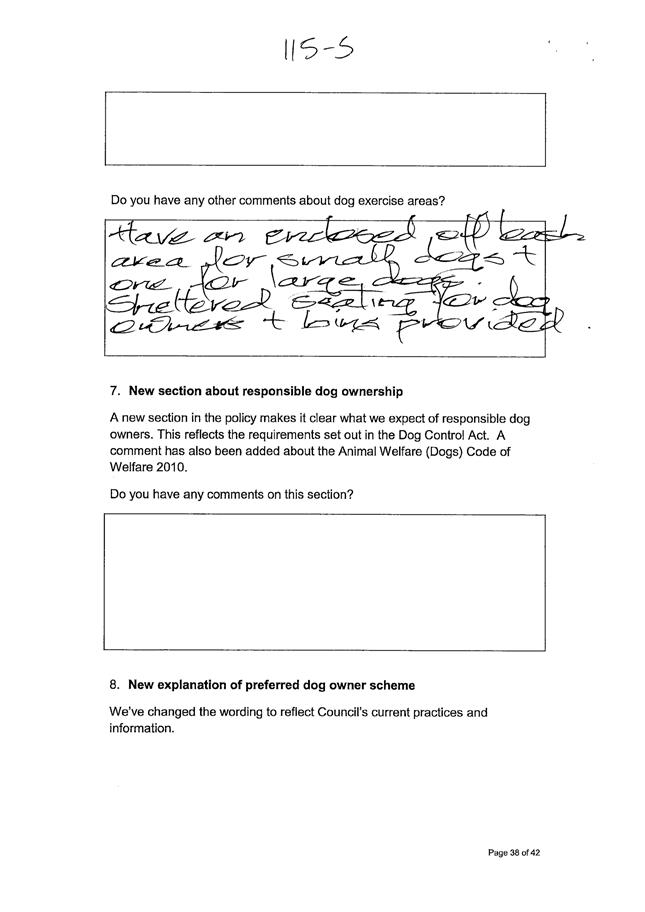 115-S
Do you have any other comments about dog exercise areas?
Have an enclosed, off leash
area for small dogs +
one for large dogs.
Sheltered seating for dog
owners + bins provided
7. New section about responsible dog ownership
A new section in the policy makes it clear what we expect of responsible dog
owners. This reflects the requirements set out in the Dog Control Act. A
comment has also been added about the Animal Welfare (Dogs) Code of
Welfare 2010.
Do you have any comments on this section?
8. New explanation of preferred dog owner scheme
We've changed the wording to reflect Council's current practices and
information.
Page 38 of 42